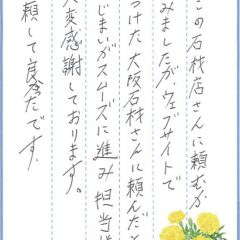 この石材店さんに頼むか
みましたが、ウェブサイトで
つけた大阪石材さんに頼んだと
じまいがスムーズに進み担当
大変感謝しております。
頼して良かたです。